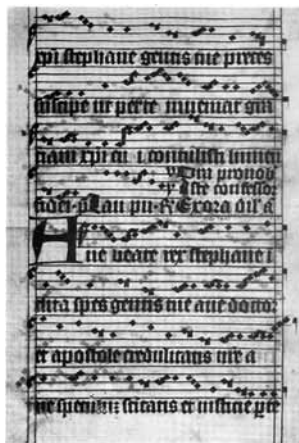 xpi stephane gentis tue preces
suscipe ut per te inveniat gra
ciam xpi cu i contulisti lumen
v Ora pro nob
v Iste confessor
fidei p Lau pu Exora dil a
Ave beate rex stephane i
clita spes gentis tue ave doctor
et apostole credulitatis nre a
ve speculum scitatis et iusticie p te